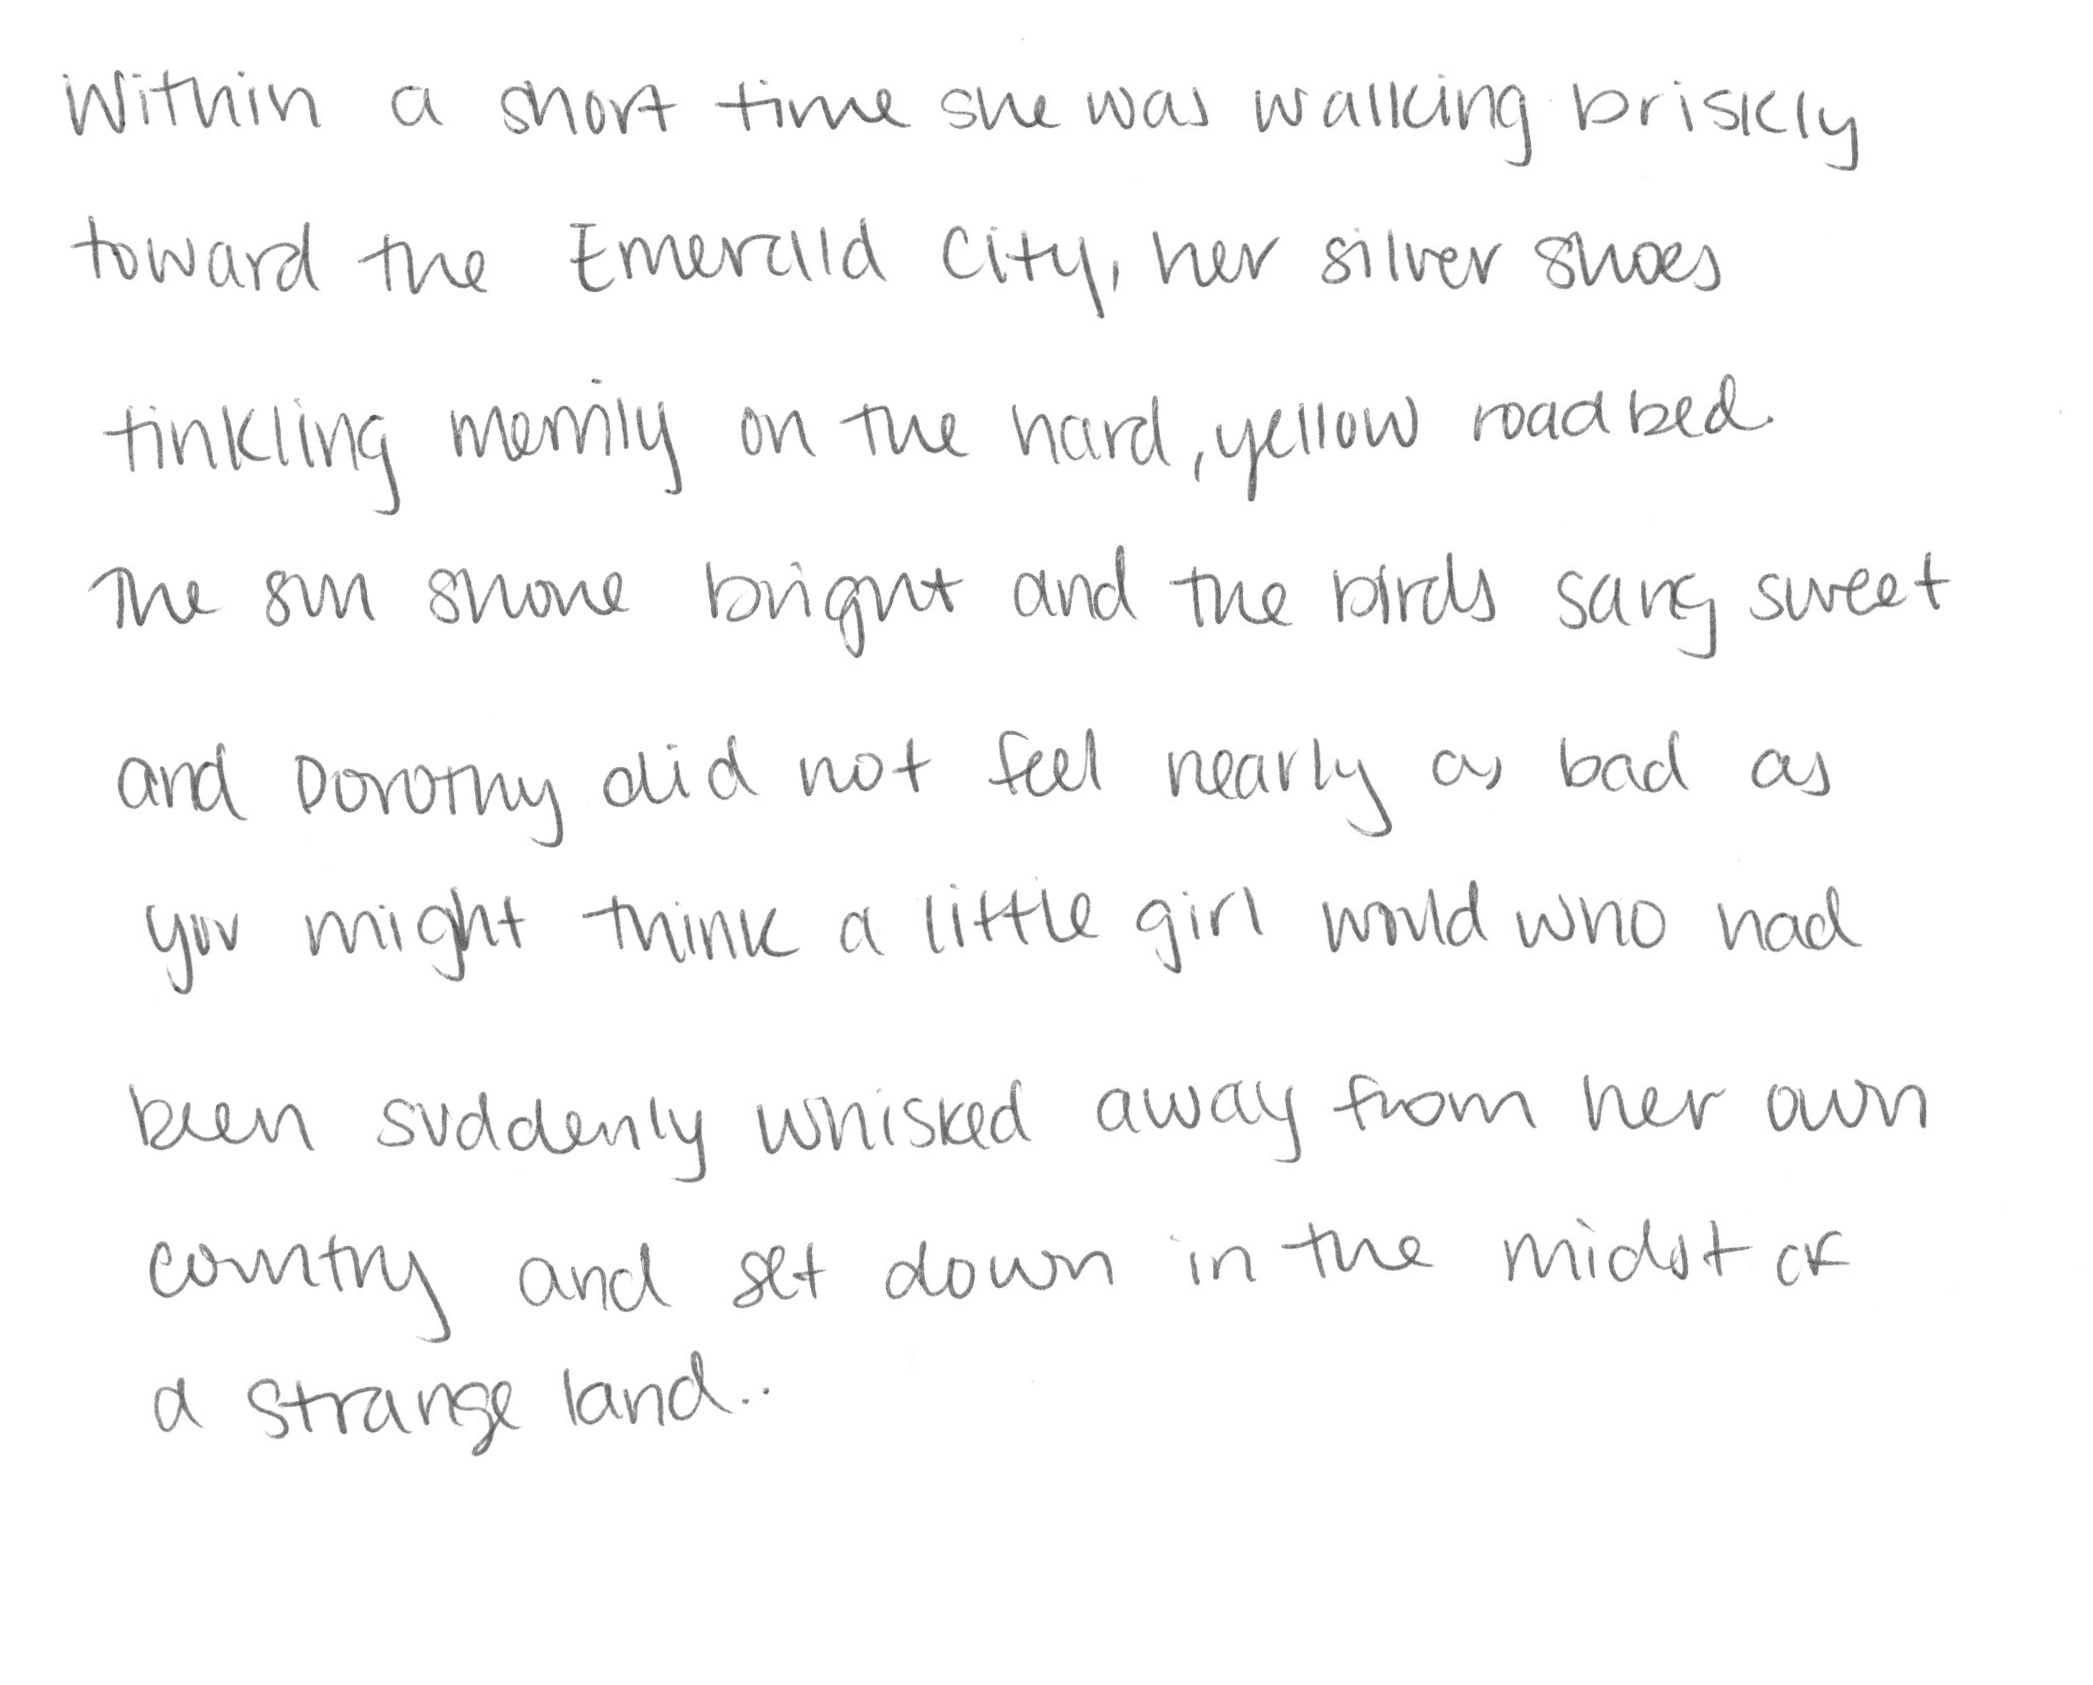 Within a short time she was walking briskly
toward the Emerald City, her silver shoes
tinkling merrily on the hard, yellow roadbed.
The sun shone bright and the birds sang sweet
and Dorothy did not feel nearly as bad as
you might think a little girl would who had
been suddenly whisked away from her own
country and set down in the midst of
a strange land..